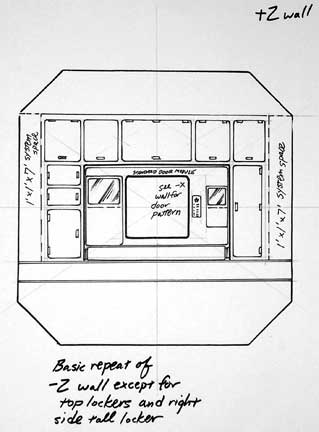 +Z wall
1'x1'x7' system
space
STANDARD DOOR MODULE
see -X
wall for
door
pattern
1'x1'x7' system space
Basic repeat of
-Z wall except for
top lockers and right
side tall locker